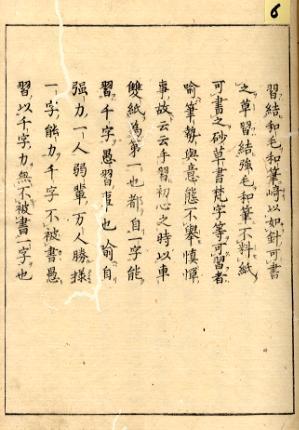 6
習結和毛和筆崎以如針可書
之草習結強毛和筆不料紙
可書之砂草書梵字等可習者
喻筆勢與意態不舉慎憚
事故云云手習初心之時以車
雙紙為第一也都自一字能
習千字愚習事也喻自
强力一人弱輩万人勝様
一字能力千字不被書愚
習以千字力無不被書一字也